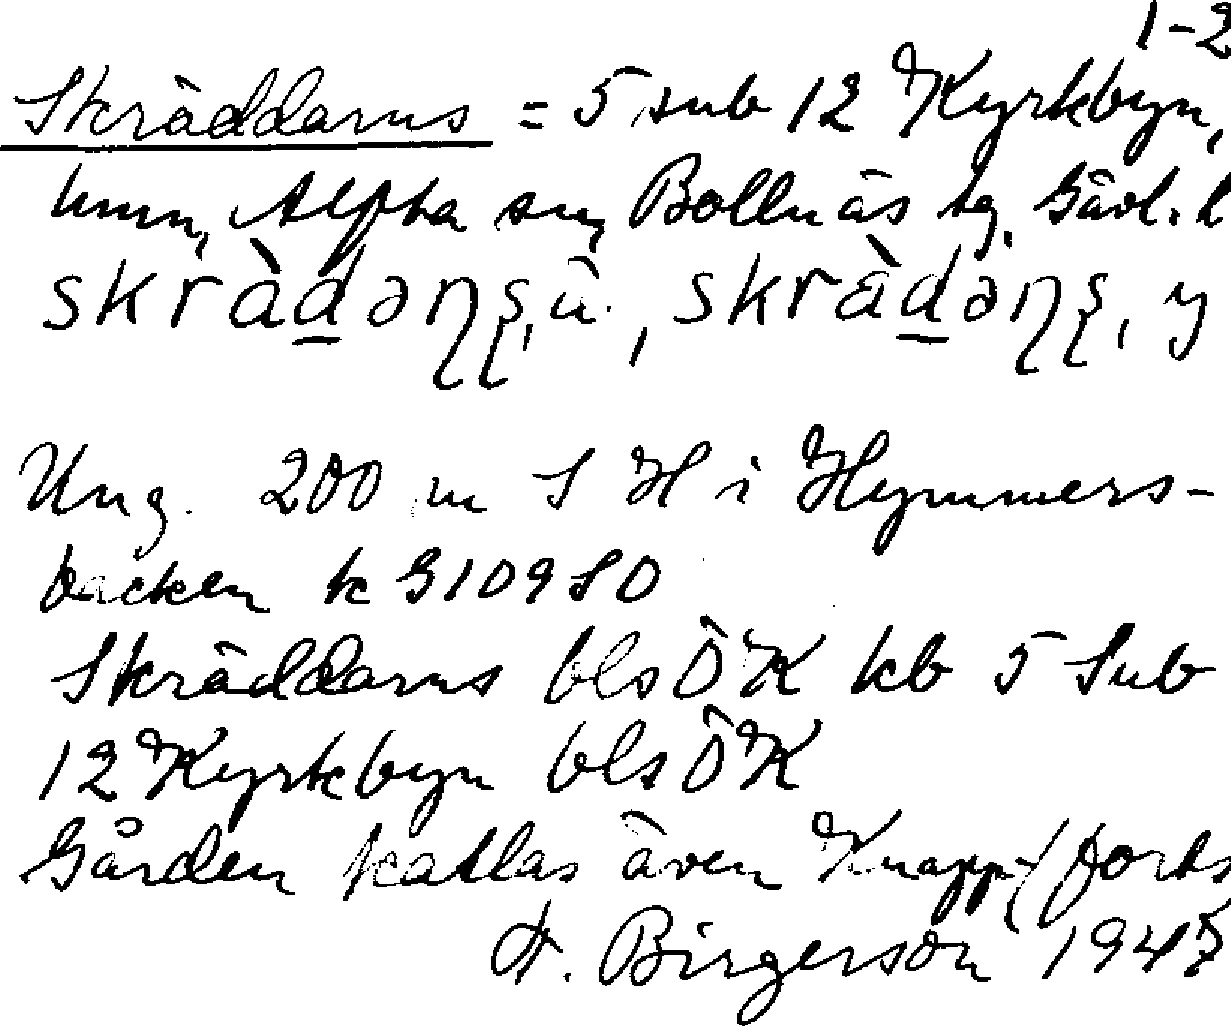 1-2
Skräddarns = 5 sub 12 Kyrkbyn,
hmn, Alfta sn, Bollnäs tg. Gävl. l
skrä̀d̲əɳʂ, ä., skrä̀d̲əɳʂ, y
Ung. 200 m S H i Hymmers-
backen k G 109 SO
Skräddarns bls ÖK kb 5 Sub
12 Kyrkbyn bls ÖK
Gården kallas även Knapp-/forts
H. Birgerson 1947